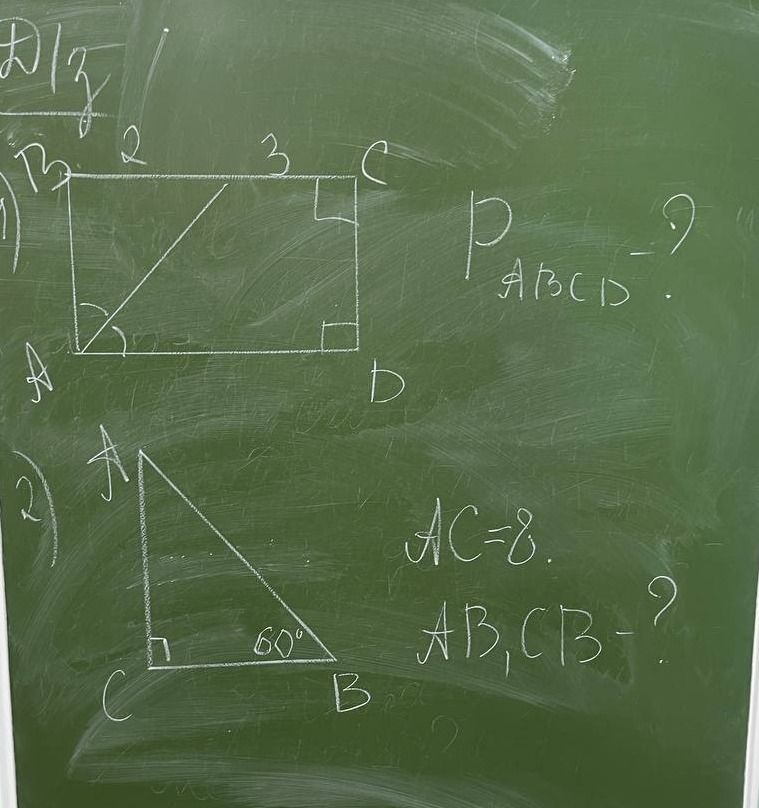 Д/з
1)
B 2 3 C
A D
P ABCD - ?
2)
A
C B
60°
AC=8.
AB, CB - ?